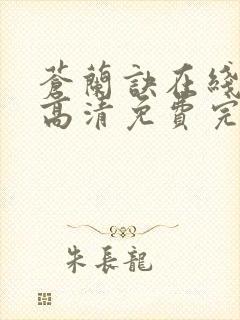 蒼蘭訣在綫
高清免費完
朱長龍